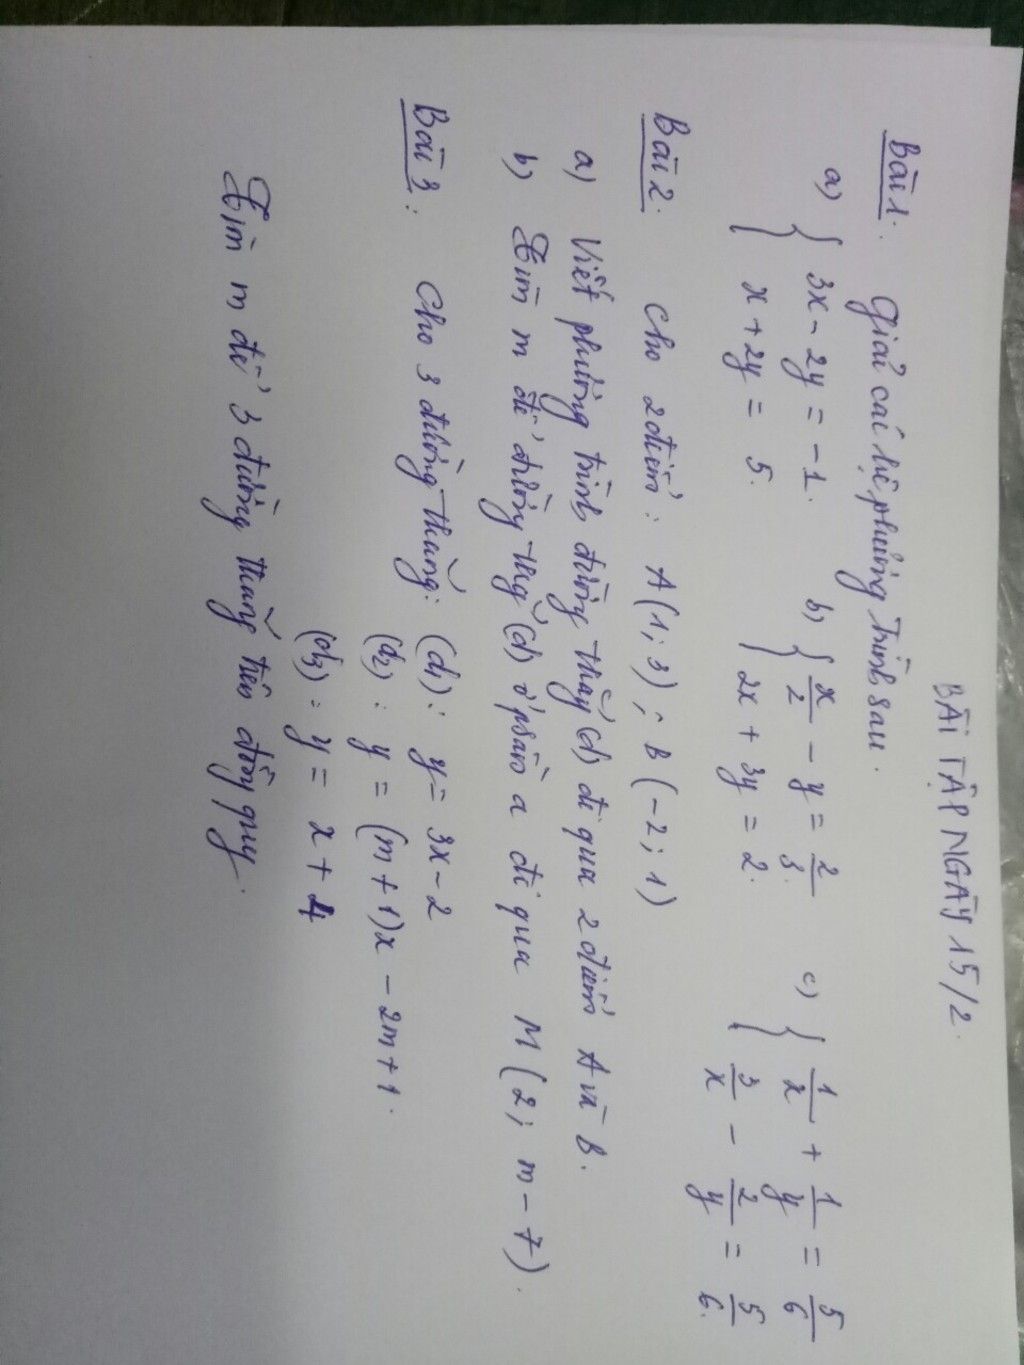 BÀI TẬP NGÀY 15/2.
Bài 1: Giải các hệ phương trình sau.
a) { 3x - 2y = -1. b) { x/2 - y = 2/3. c) { 1/x + 1/y = 5/6
x + 2y = 5. 2x + 3y = 2. 3/x - 2/y = 5/6.
Bài 2: Cho 2 điểm: A(1; 3) ; B(-2; 1)
a) Viết phương trình đường thẳng (d) đi qua 2 điểm A và B.
b) Tìm m để đường thẳng (d) ở phần a đi qua M(2; m - 7).
Bài 3: Cho 3 đường thẳng: (d1): y = 3x - 2
(d2): y = (m + 1)x - 2m + 1.
(d3): y = x + 4
Tìm m để 3 đường thẳng trên đồng quy.